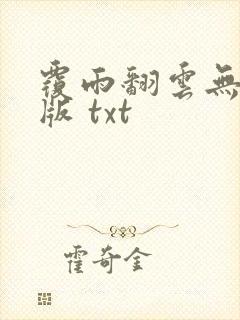 覆雨翻雲無
版 txt
霍奇金